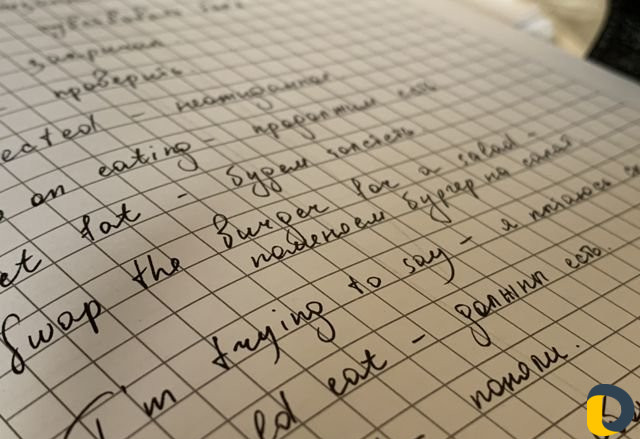 закричал
- проверить
ected - неожиданный
on eating - продолжил есть
et fat - будем
Swap the burger for a salad -
поменяем бургер на салат.
I'm trying to say - я пытаюсь
ld eat - должны есть.